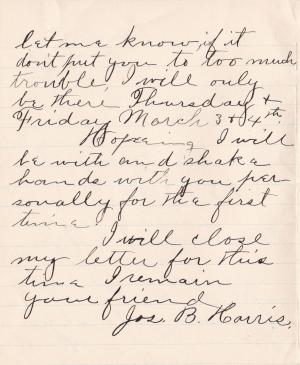 let me know, if it
don't put you to too much
trouble, I will only
be there Thursday &
Friday March 3 & 4th.
Hopeing I will
be with and shake
hands with you per
sonally for the first
time
I will close
my letter for this
time I remain
your friend
Jos. B. Harris.